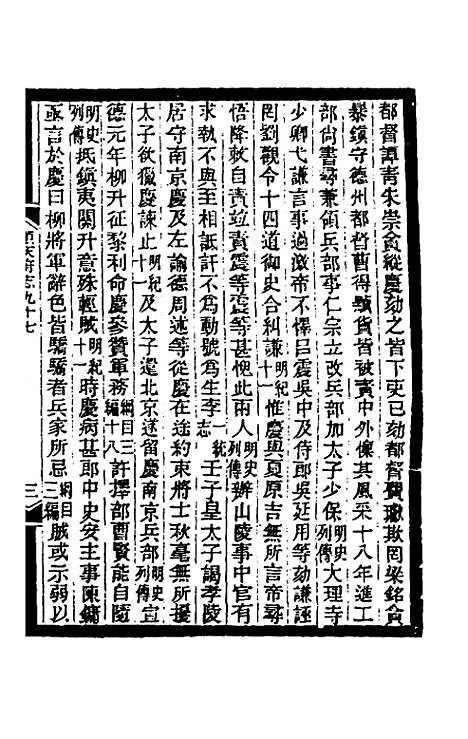 都督譚青朱崇貪縱慶劾之皆下吏已劾都督費瓛欺罔梁銘貪
暴鎮守德州都督曹得黷貨皆被責中外懍其風采十八年進工
部尚書尋兼領兵部事仁宗立改兵部加太子少保明史列傳大理寺
少卿弋謙言事過激帝不懌呂震吳中及侍郎吳廷用等劾謙誣
罔劉觀令十四道御史合糾謙明紀十一惟慶與夏原吉無所言帝尋
悟降敕自責竝責震等震等甚愧此兩人明史列傳辦山陵事中官有
求執不與至相詆訐不為動號為生李一統志壬子皇太子謁孝陵
居守南京慶及左諭德周述等從慶在途約束將士秋毫無所擾
太子欲獵慶諫止明紀十一及太子還北京遂留慶南京兵部明史列傳宣
德元年柳升征黎利命慶參贊軍務綱目三編十八許擇部曹賢能自隨
明史列傳抵鎮夷關升意殊輕賊明紀十一時慶病甚郎中史安主事陳鏞
亟言於慶曰柳將軍辭色皆驕驕者兵家所忌綱目三編賊或示弱以
順天府志九十七
三